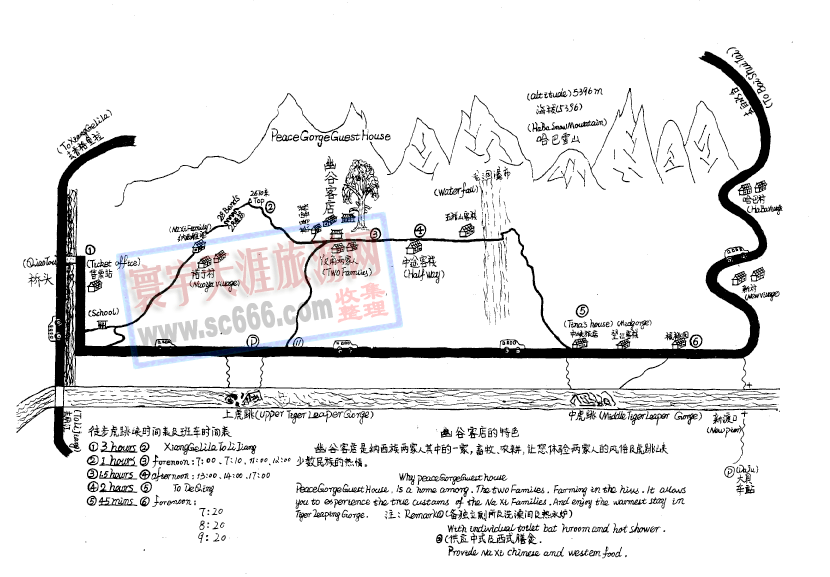 (To XiangGeLiLa)
去香格里拉
PeaceGorgeGuestHouse
(altitude) 5396m
海拔(5396)
(HaBaSnowMountain)
哈巴雪山
(To Bai Shui Tai)
去白水台
(Waterfall)
瀑布
幽谷客店
28 Bends
2670米
Top
②
(NaXiFamily)
纳西雅阁
诺于村
(NuoyuVillage)
①
(Ticket office)
售票站
(QiaoTou)
桥头
(School)
③
(TWO Families)
④
中途客栈
(Half way)
哈巴村
(HaBaVillage)
新村
(NewVillage)
⑤
(Tina's house)
(Midgorge)
⑥
P
寰宇天涯旅游网
www.sc666.com
收集
整理
上虎跳(upper Tiger Leaper Gorge)
中虎跳(Middle Tiger Leaper Gorge)
新渡口
(Newpier)
(To LiJiang)
去丽江
P
(DaJu)
大具
车站
徒步虎跳峡时间表及班车时间表
① 3 hours ② XiangGeLiLa To Li Jiang
② 1 hours ③ forenoon: 7:00、7:10、11:00、12:00
③ 1.5 hours ④ afternoon: 13:00、14:00、17:00
④ 2 hours ⑤ To DeQing
⑤ 45 mins ⑥ forenoon:
7:20
8:20
9:20
幽谷客店的特色
幽谷客店是纳西族两家人其中的一家，畜牧、农耕，让您体验两家人的风俗及虎跳峡
少数民族的热情。
Why peaceGorgeGuesthouse
PeaceGorgeGuestHouse. Is a home among. The two Families. Farming in the hius. It allows
you to experience the true custams of the Na Xi Families. And enjoy the warmest stay in
Tiger Leaping Gorge. 注: Remark①(备独立厕所及洗澡间及热水炉)
With individual toilet bat hroom and hot shower.
②(供应中式及西式膳食.
Provide Na Xi chinese and western food.